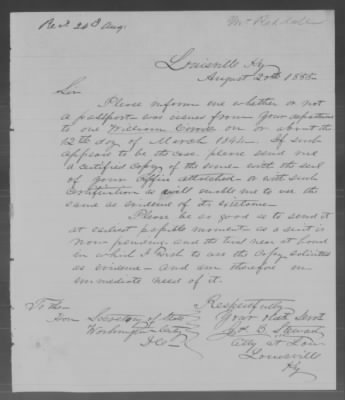 Recd 24th Aug.
Louisville Ky
August 20th 1885
Sir
Please inform me whether or not
a passport was issued from your department
to one William Cook on or about the
12th day of March 1844. If such
appears to be the case please send me
a certified copy of the same with the seal
of your office attached - or with such
certification as will enable me to use the
same as evidence of its existence -
Please be so good as to send it
at earliest possible moment as a suit is
now pending and the trial near at hand
in which I wish to use the copy solicited
as evidence - and am therefore in
immediate need of it.
Respectfully
Your Obdt Servt
B. Stewart
Atty at Law
Louisville
Ky
To the
Hon Secretary of State
Washington City
D.C.